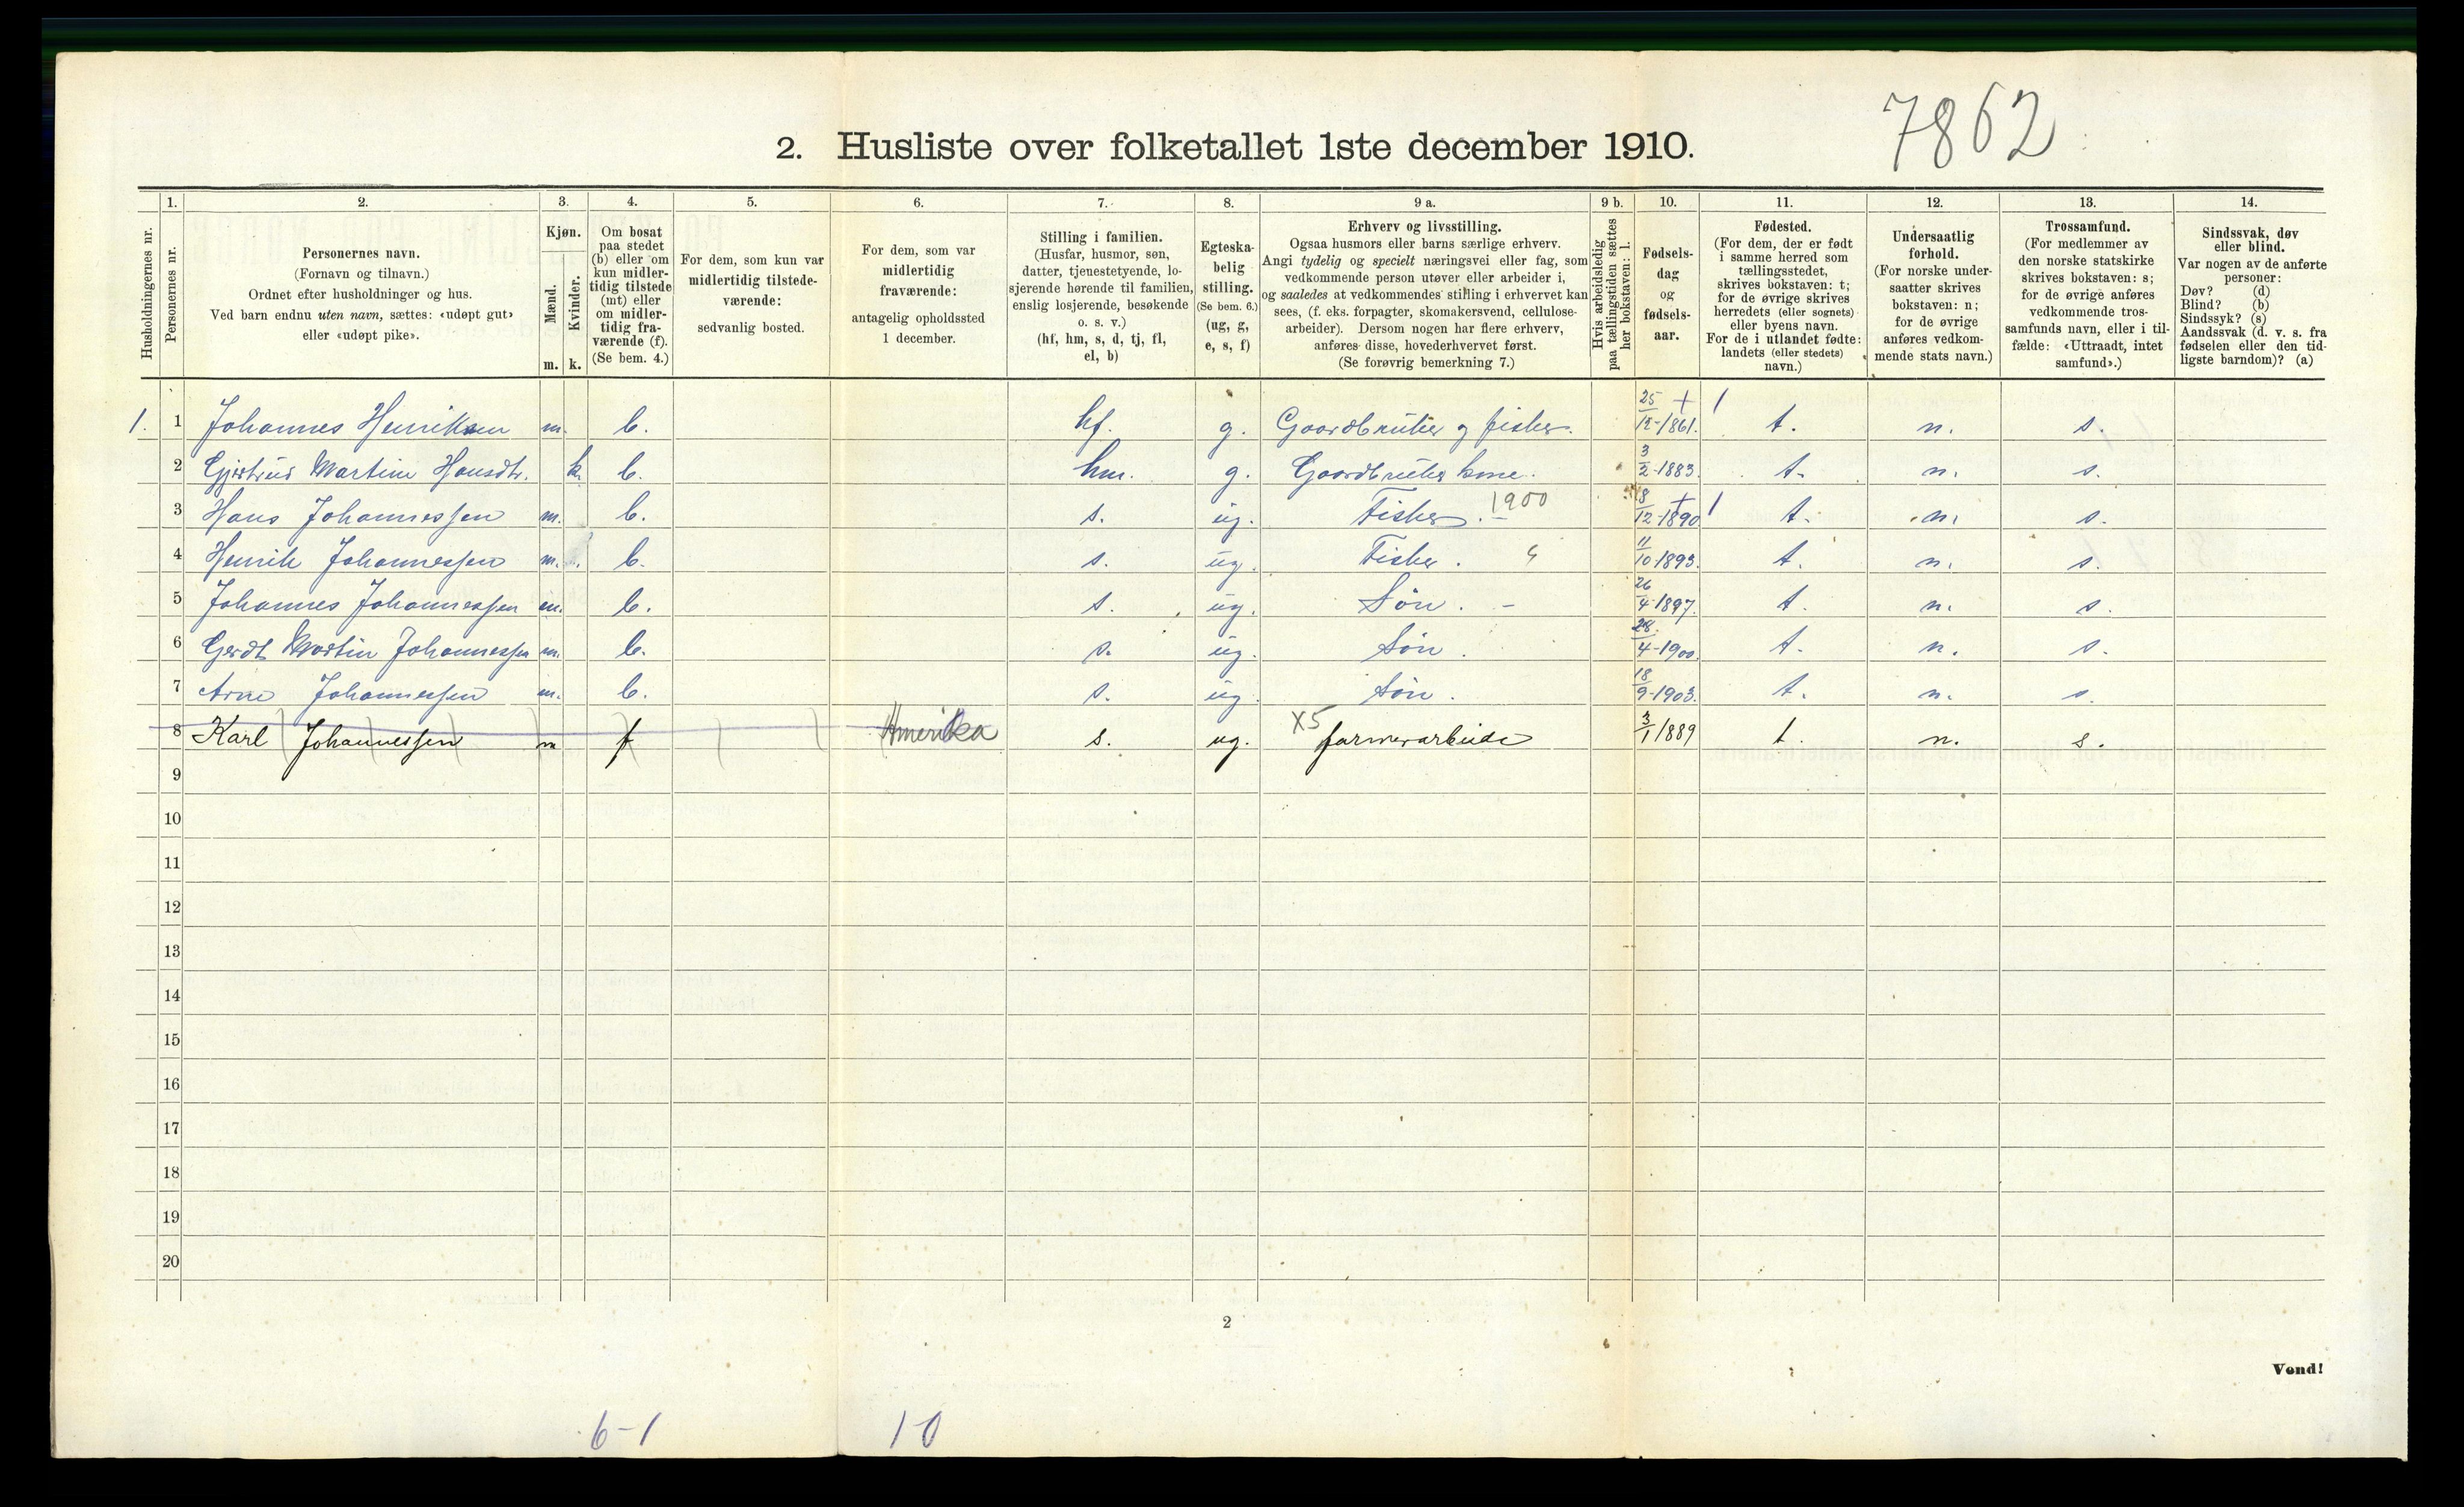 7862
2. Husliste over folketallet 1ste december 1910.
Husholdningernes nr.
1.
Personernes nr.
2.
Personernes navn.
(Fornavn og tilnavn.)
Ordnet efter husholdninger og hus.
Ved barn endnu uten navn, sættes: «udøpt gut»
eller «udøpt pike».
3.
Kjøn.
Mænd.
Kvinder.
m. k.
4.
Om bosat
paa stedet
(b) eller om
kun midler-
tidig tilstede
(mt) eller
om midler-
tidig fra-
værende (f).
(Se bem. 4.)
5.
For dem, som kun var
midlertidig tilstede-
værende:
sedvanlig bosted.
6.
For dem, som var
midlertidig
fraværende:
antagelig opholdssted
1 december.
7.
Stilling i familien.
(Husfar, husmor, søn,
datter, tjenestetyende, lo-
sjerende hørende til familien,
enslig losjerende, besøkende
o. s. v.)
(hf, hm, s, d, tj, fl,
el, b)
8.
Egteska-
belig
stilling.
(Se bem. 6.)
(ug, g,
e, s, f)
9 a.
Erhverv og livsstilling.
Ogsaa husmors eller barns særlige erhverv.
Angi tydelig og specielt næringsvei eller fag, som
vedkommende person utøver eller arbeider i,
og saaledes at vedkommendes stilling i erhvervet kan
sees, (f. eks. forpagter, skomakersvend, cellulose-
arbeider). Dersom nogen har flere erhverv,
anføres disse, hovederhvervet først.
(Se forøvrig bemerkning 7.)
9 b.
Hvis arbeidsledig
paa tællingstiden sættes
her bokstaven: l.
10.
Fødsels-
dag
og
fødsels-
aar.
11.
Fødested.
(For dem, der er født
i samme herred som
tællingsstedet,
skrives bokstaven: t;
for de øvrige skrives
herredets (eller sognets)
eller byens navn.
For de i utlandet fødte:
landets (eller stedets)
navn.)
12.
Undersaatlig
forhold.
(For norske under-
saatter skrives
bokstaven: n;
for de øvrige
anføres vedkom-
mende stats navn.)
13.
Trossamfund.
(For medlemmer av
den norske statskirke
skrives bokstaven: s;
for de øvrige anføres
vedkommende tros-
samfunds navn, eller i til-
fælde: «Uttraadt, intet
samfund».)
14.
Sindssvak, døv
eller blind.
Var nogen av de anførte
personer:
Døv? (d)
Blind? (b)
Sindssyk? (s)
Aandssvak (d. v. s. fra
fødselen eller den tid-
ligste barndom)? (a)
1. 1 Johannes Henriksen m. b. hf. g. Gaardbruker og fisker. 25/12-1861. + / t. n. s.
2 Gjertrud Martine Hansdtr. k. b. hm. g. Gaardbruker kone. 3/2-1883. t. n. s.
3 Hans Johannessen m. b. s. ug. Fisker. 1900 8/12-1890 + / t. n. s.
4 Henrik Johannessen m. b. s. ug. Fisker. 11/10-1893. t. n. s.
5 Johannes Johannessen m. b. s. ug. Søn. - 26/4-1897. t. n. s.
6 Gerdt Martin Johannessen m. b. s. ug. Søn. 28/4-1900. t. n. s.
7 Arne Johannessen m. b. s. ug. Søn. 18/9-1903. t. n. s.
8 Karl Johannessen m f Amerika s. ug. X5 farmerarbeide 3/1 1889 t. n. s.
9
10
11
12
13
14
15
16
17
18
19
20
2
Vend!
6-1 1-0